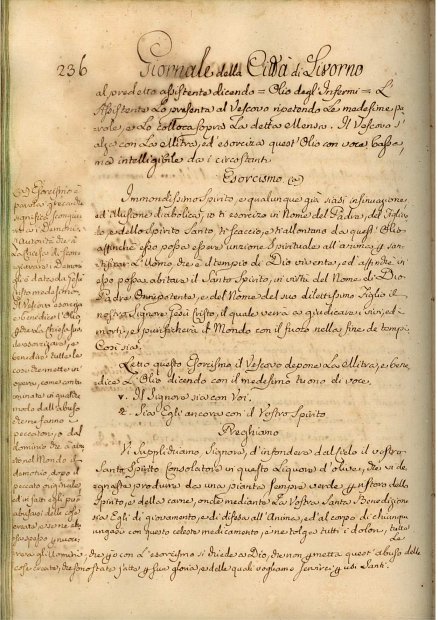 236 Giornale della Città di Livorno
al predetto assistente dicendo = Olio degl'Infermi =. L'
Assistente lo presenta al Vescovo ripetendo le medesime pa-
role, e lo colloca sopra la detta Mensa. Il Vescovo s'
alza con la Mitra, ed esorciza quest'Olio con voce bassa,
ma intelligibile da i circostanti.
Esorcismo (a)
Immondissimo Spirito, e qualunque già siasi insinuazione,
ed illusione diabolica, io ti esorcizo in Nome del Padre, del Figlio,
e dello Spirito Santo, ti scaccio, e ti allontano da quest'Olio
affinchè esso possa essere unzione Spirituale all'anima, e San-
tificar l'Uomo, che è tempio di Dio vivente, ed affinche in
esso possa abitare il Santo Spirito, in virtù del Nome di Dio
Padre Onnipotente, e del Nome del suo dilettissimo Figlio il
nostro Signore Gesù Cristo, il quale verrà a giudicare i vivi, ed i
morti, e purificherà il Mondo con il fuoco nella fine de tempi,
Così sia.
Letto questo Esorcismo il Vescovo depone la Mitra, e bene-
dice l'Olio dicendo con il medesimo tuono di voce.
V. Il Signore sia con Voi.
R. Sia Egli ancora con il Vostro Spirito
Preghiamo
Vi Supplichiamo, Signore, d'infondere dal Cielo il vostro
Santo Spirito Consolatore in questo Liquore d'olive, che vi de-
gnaste produrre da una pianta sempre verde per ristoro dello
Spirito, e della carne, onde mediante la Vostra Santa Benedizione
sia Egli di giovamento, e di difesa all'Anima, ed al corpo di chiunque
ungasi con questo celeste medicamento, e ne tolga tutti i dolori, tutte
le
(a) Esorcismo è
parola greca che
significa Scongiu-
L'autorità che à
la Chiesa di Scon-
giurare i Demonj
gli è data da Gesù
Cristo
Il Vescovo esorciza
e benedice l'Olio
perche la Chiesa suole
esorcizare, e
benedire tutte le
cose che mette in
opera, come conta-
minate in qualche
modo dall'abuso
che ne fanno i
peccatori, o dal
dominio che à
nel Mondo il
demonio dopo il
peccato originale,
ed in fatti egli può
abusarsi delle cose
create, e
spesso per nuoce-
re agli Uomini, che però con l'esorcismo si chiede a Dio, che non permetta quest'abuso delle
cose create, che sono state fatte per Sua gloria, e delle quali vogliamo servirci per usi Santi.